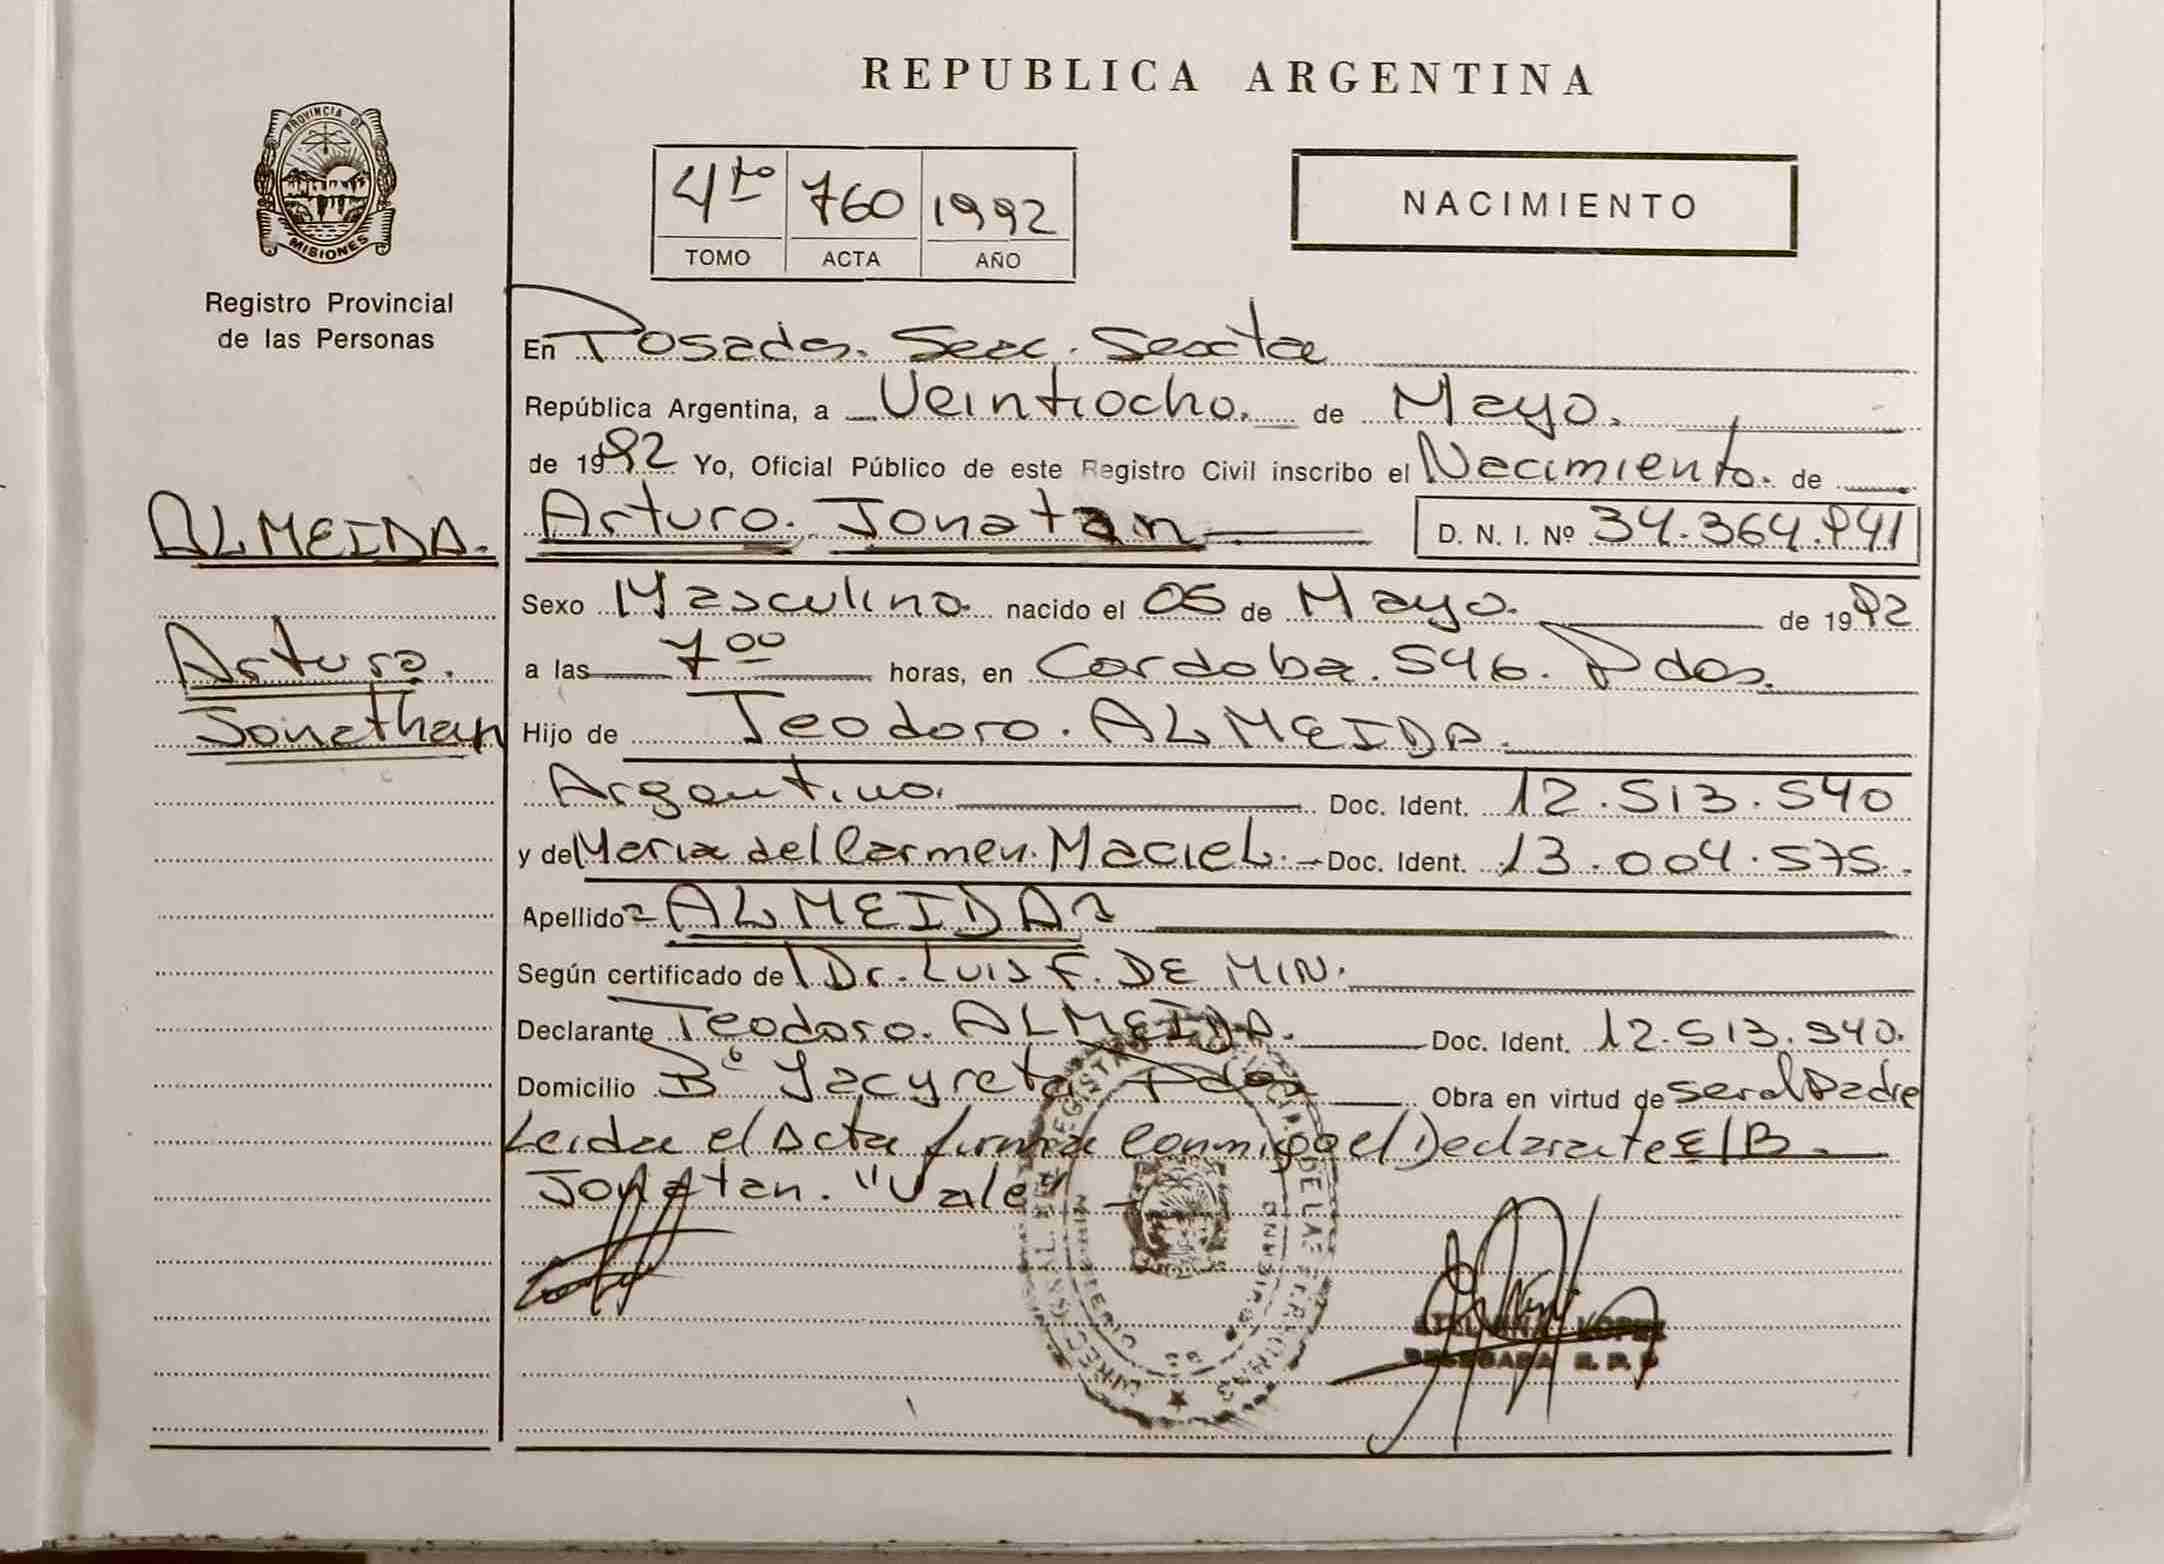 REPUBLICA ARGENTINA
PROVINCIA DE
MISIONES
Registro Provincial
de las Personas
4to 760 1992
TOMO ACTA AÑO
NACIMIENTO
En Posadas. Secc. Sexta
República Argentina, a Veintiocho. de Mayo.
de 1992 Yo, Oficial Público de este Registro Civil inscribo el Nacimiento. de
ALMEIDA.
Arturo. Jonatan D. N. I. Nº 34.364.941
Sexo Masculino. nacido el 05 de Mayo. de 1992
Arturo.
a las 7 00 horas, en Cordoba. 546. Pdas.
Jonathan
Hijo de Teodoro. ALMEIDA.
Argentino. Doc. Ident. 12.513.540
y de Maria del Carmen. Maciel. Doc. Ident. 13.004.575.
Apellido ALMEIDA
Según certificado de Dr. Luis F. DE MIN.
Declarante Teodoro. ALMEIDA. Doc. Ident. 12.513.940.
Domicilio Bº Yacyreta Pdas Obra en virtud de ser el Padre
Leida el Acta firma conmigo el Declarante E/B.
Jonatan. "Vale"
LOPEZ
DELEGADA R. P. P